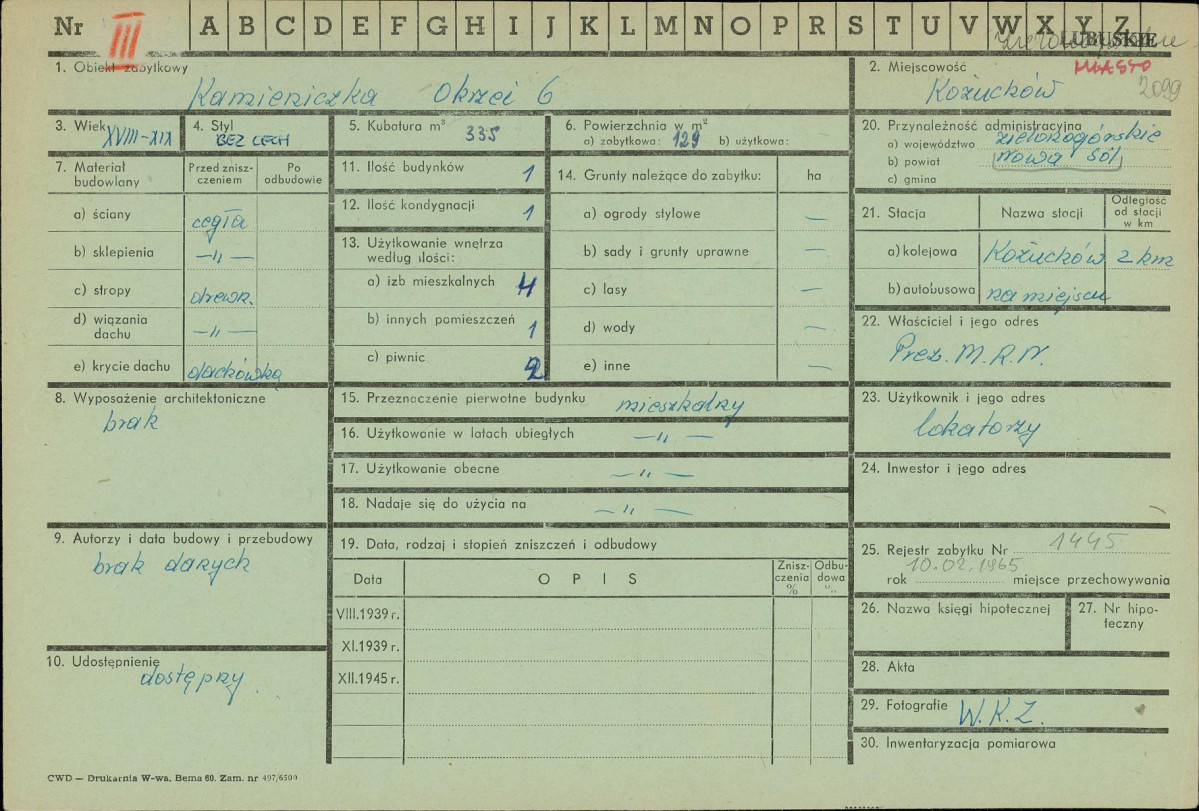 Nr III A B C D E F G H I J K L M N O P R S T U V W X Y Z
LUBUSKIE
MIASTO
2099
1. Obiekt zabytkowy
Kamieniczka Okrzei 6
2. Miejscowość
Kożuchów
3. Wiek XVIII-XIX
4. Styl
BEZ CECH
5. Kubatura m³ 335
6. Powierzchnia w m²
a) zabytkowa: 129 b) użytkowa:
20. Przynależność administracyjna
a) województwo zielonogórskie
b) powiat Nowa Sól
c) gmina
7. Materiał budowlany
Przed zniszczeniem
Po odbudowie
a) ściany cegła
b) sklepienia —„—
c) stropy drewn.
d) wiązania dachu —„—
e) krycie dachu dachówka
11. Ilość budynków 1
12. Ilość kondygnacji 1
13. Użytkowanie wnętrza
według ilości:
a) izb mieszkalnych 4
b) innych pomieszczeń 1
c) piwnic 2
14. Grunty należące do zabytku: ha
a) ogrody stylowe —
b) sady i grunty uprawne —
c) lasy —
d) wody —
e) inne —
21. Stacja Nazwa stacji Odległość od stacji w km
a) kolejowa Kożuchów 2 km
b) autobusowa na miejscu
22. Właściciel i jego adres
Prez. M.R.N.
8. Wyposażenie architektoniczne
brak
15. Przeznaczenie pierwotne budynku mieszkalny
16. Użytkowanie w latach ubiegłych —„—
17. Użytkowanie obecne —„—
18. Nadaje się do użycia na —„—
23. Użytkownik i jego adres
lokatorzy
24. Inwestor i jego adres
9. Autorzy i data budowy i przebudowy
brak danych
19. Data, rodzaj i stopień zniszczeń i odbudowy
Data OPIS Zniszczenia % Odbudowa %
VIII.1939 r.
XI.1939 r.
XII.1945 r.
25. Rejestr zabytku Nr 1445
10.02.1965
rok miejsce przechowywania
26. Nazwa księgi hipotecznej
27. Nr hipoteczny
10. Udostępnienie
dostępny
28. Akta
29. Fotografie W.K.Z.
30. Inwentaryzacja pomiarowa
CWD — Drukarnia W-wa, Bema 60. Zam. nr 497/6500